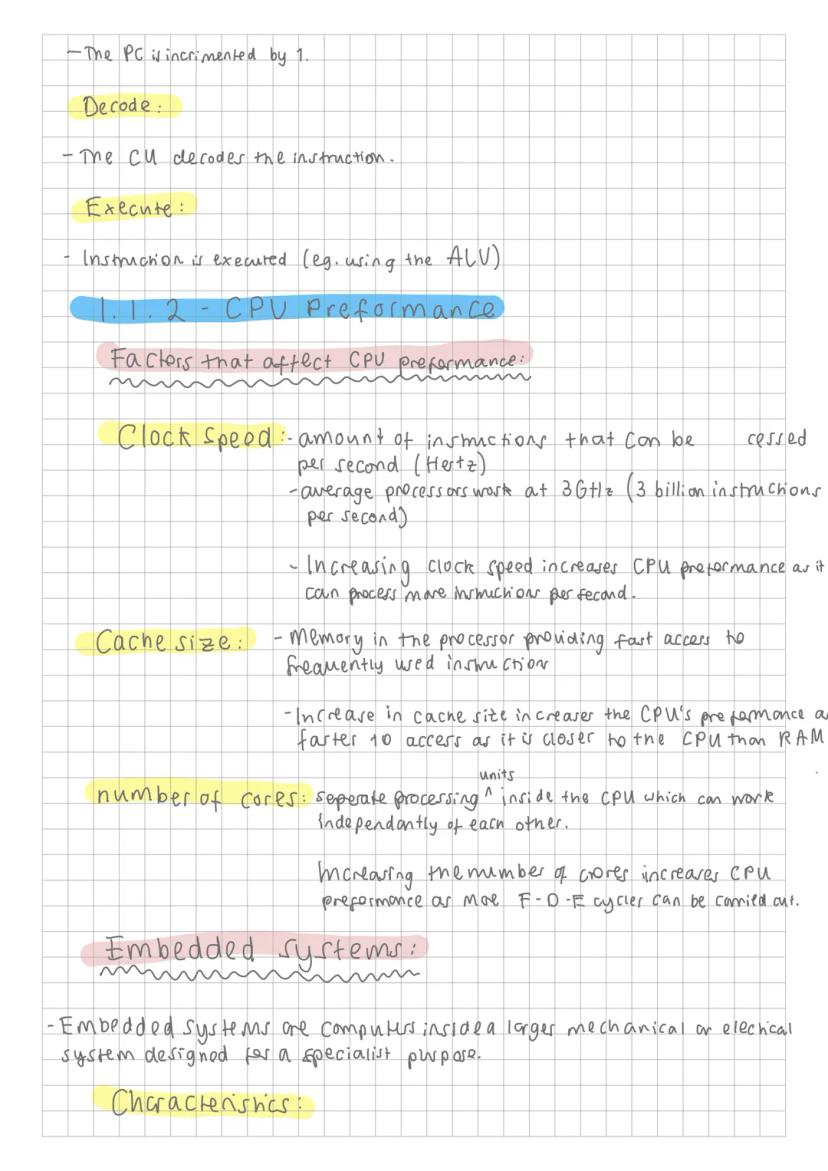 - The PC is incrimented by 1.
Decode:
- The CU decodes the instruction.
Execute:
- Instruction is executed (eg. using the ALU)
1.1.2 - CPU Preformance
Factors that affect CPU preformance:
Clock Speed: - amount of instructions that can be cessed
per second (Hertz)
- average processors work at 3GHz (3 billion instructions
per second)
- Increasing clock speed increases CPU preformance as it
can process more instructions per second.
Cache size: - Memory in the processor providing fast access to
frequently used instruction
- Increase in cache size increases the CPU's preformance a
faster to access as it is closer to the CPU than RAM
units
number of cores: seperate processing ^ inside the CPU which can work
independantly of each other.
Increasing the number of cores increases CPU
preformance as more F-D-E cycles can be carried out.
Embedded systems:
- Embedded systems are computers inside a larger mechanical or electical
system designed for a specialist purpose.
Characteristics: